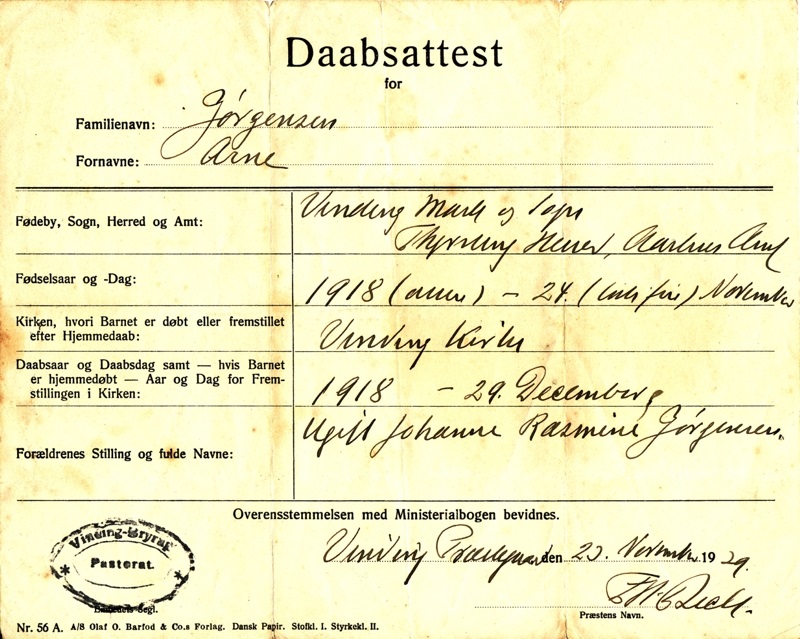 Daabsattest
for
Familienavn: Jørgensen
Fornavne: Arne
Fødeby, Sogn, Herred og Amt:
Vinding Mark og Sogn
Thyrsting Herred, Aarhus Amt
Fødselsaar og -Dag:
1918 (atten) – 24. ( ) November
Kirken, hvori Barnet er døbt eller fremstillet
efter Hjemmedaab:
Vinding Kirke
Daabsaar og Daabsdag samt — hvis Barnet
er hjemmedøbt — Aar og Dag for Frem-
stillingen i Kirken:
1918 – 29. December
Forældrenes Stilling og fulde Navne:
Ugift Johanne Rasmine Jørgensen.
Overensstemmelsen med Ministerialbogen bevidnes.
Vinding Præstegaard den 23. November 1929.
Vinding-Bryrup
Pastorat.
Embedets Segl.
Præstens Navn.
Nr. 56 A. A/S Olaf O. Barfod & Co.s Forlag. Dansk Papir. Stofkl. I. Styrkekl. II.